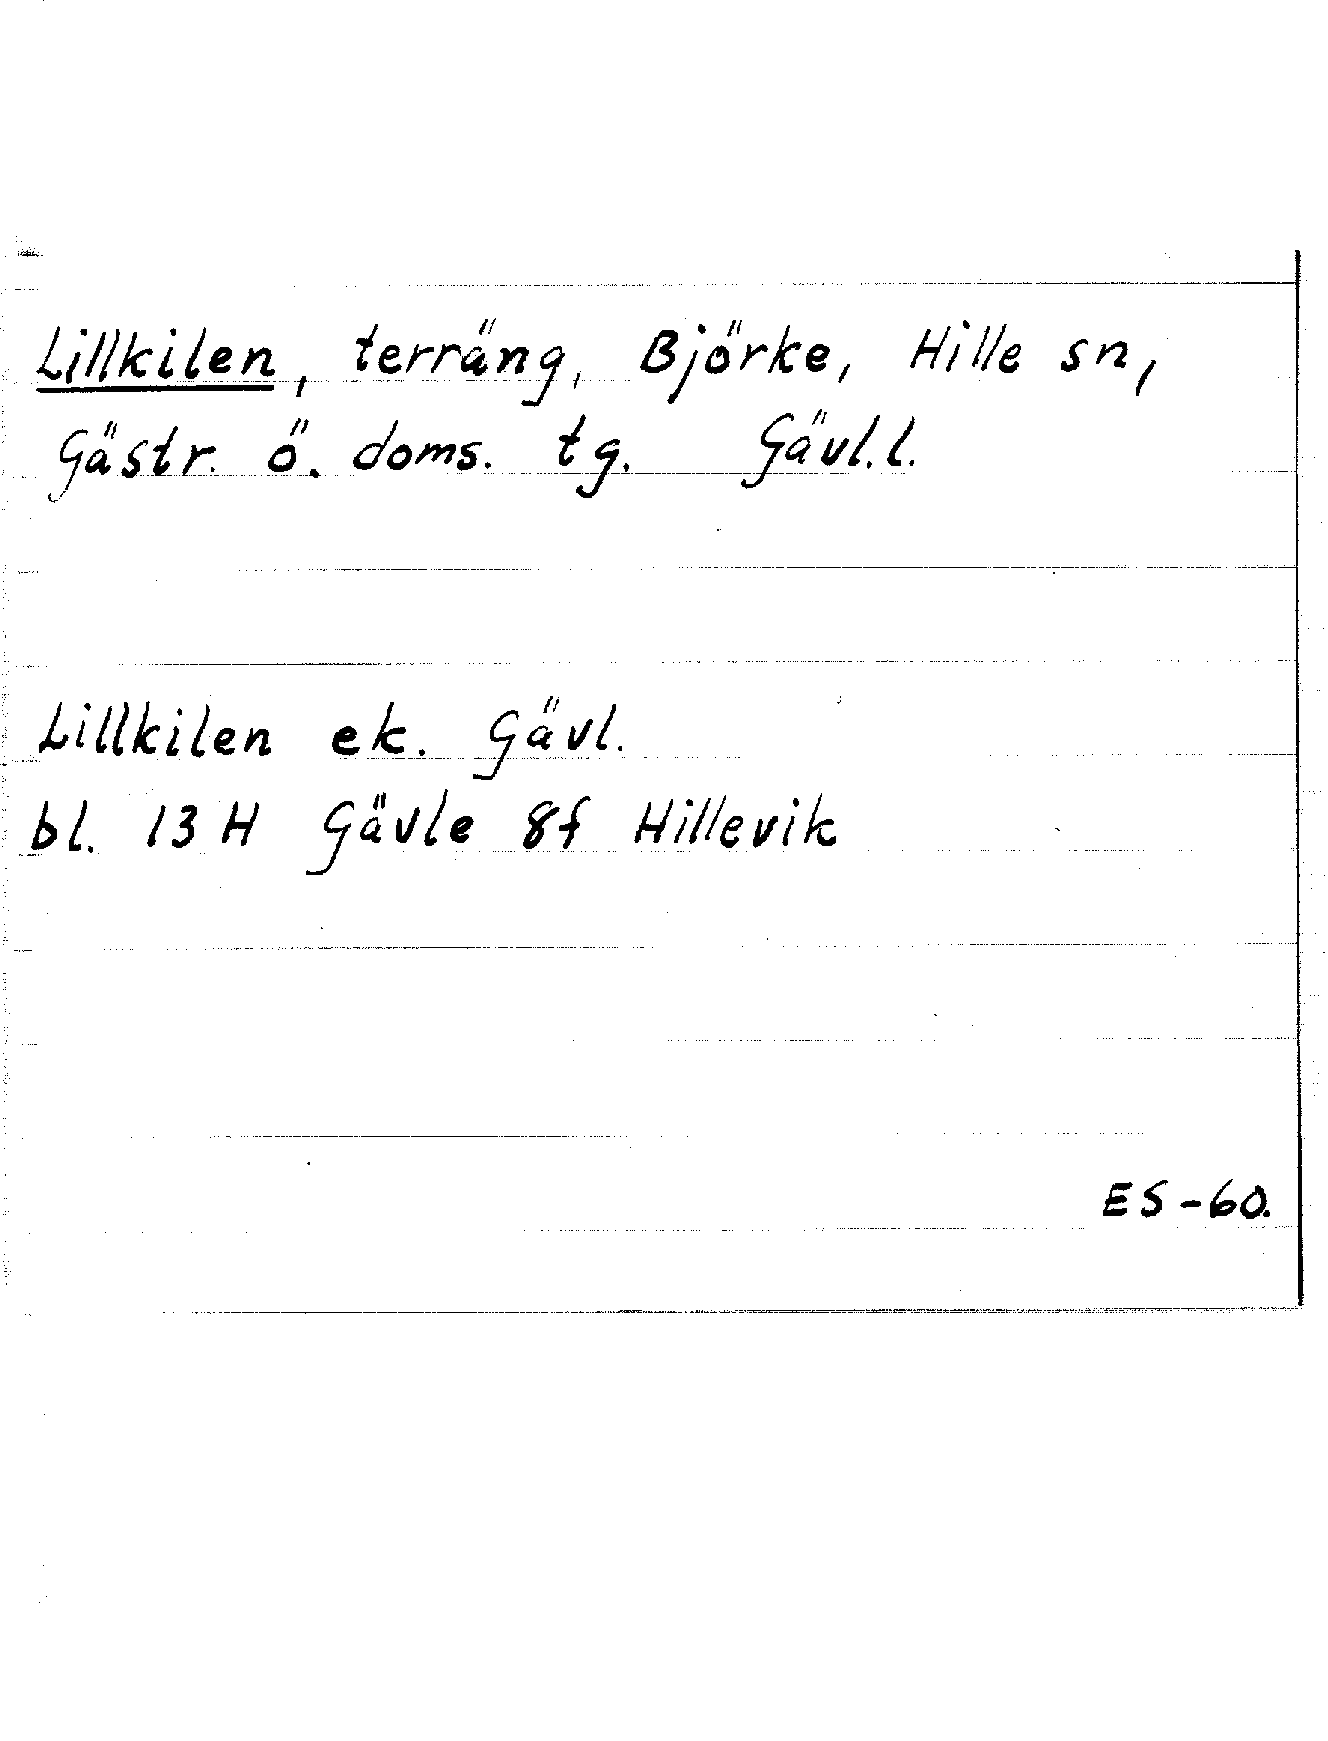 Lillkilen, terräng, Björke, Hille sn,
Gästr. ö. doms. tg. Gävl. l.
Lillkilen ek. Gävl.
bl. 13 H Gävle 8f Hillevik
ES-60.